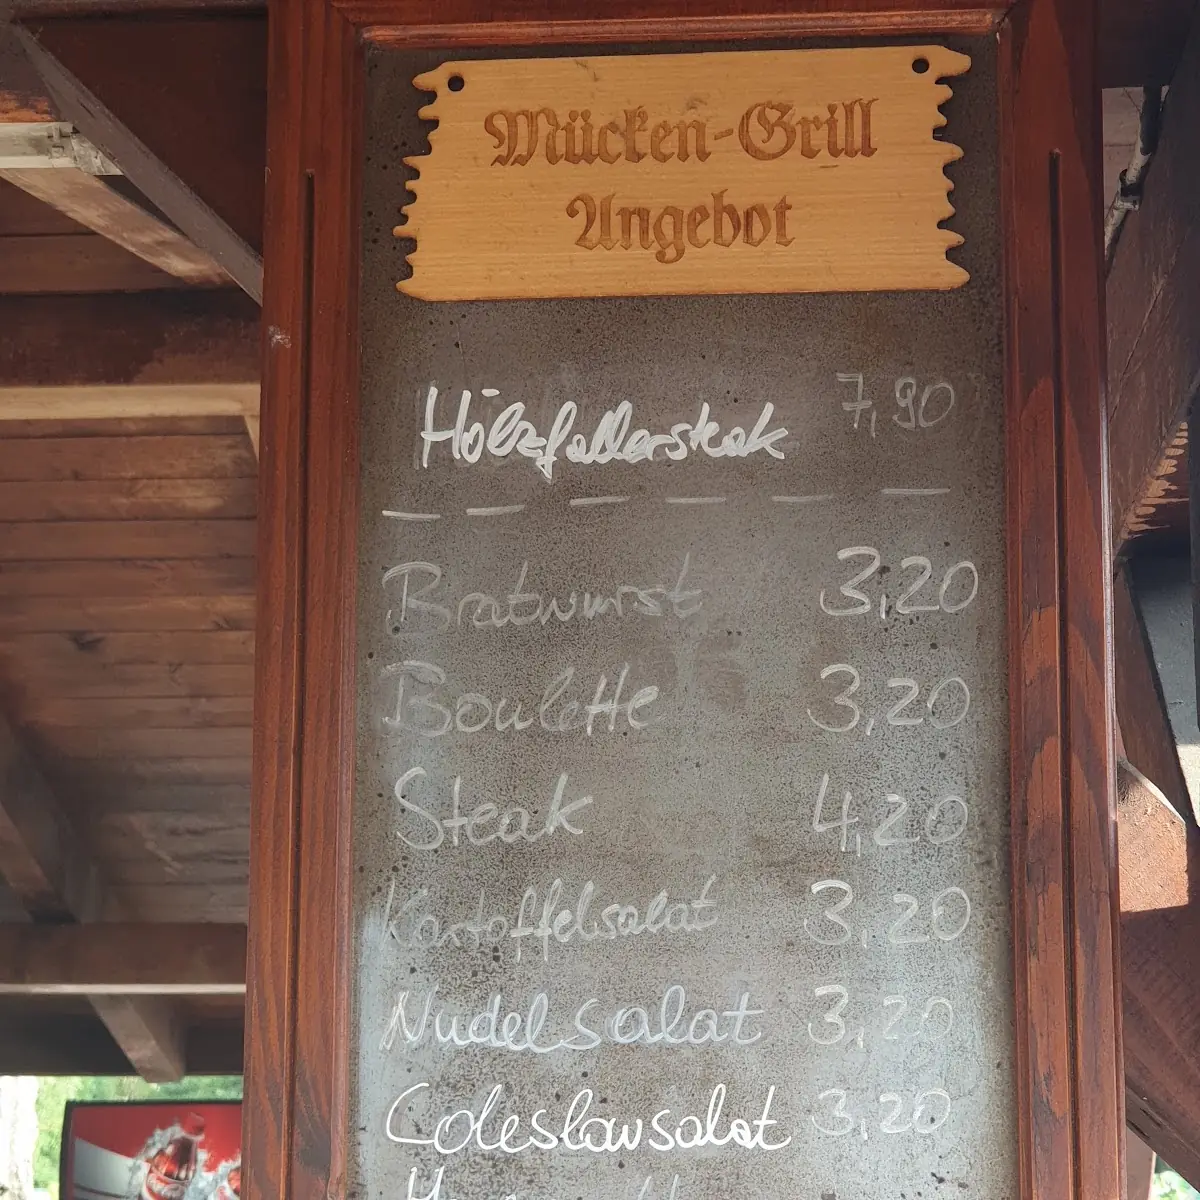 Mücken-Grill
Angebot
Holzfällersteak 7,90
Bratwurst 3,20
Boulette 3,20
Steak 4,20
Kartoffelsalat 3,20
Nudelsalat 3,20
Coleslawsalat 3,20